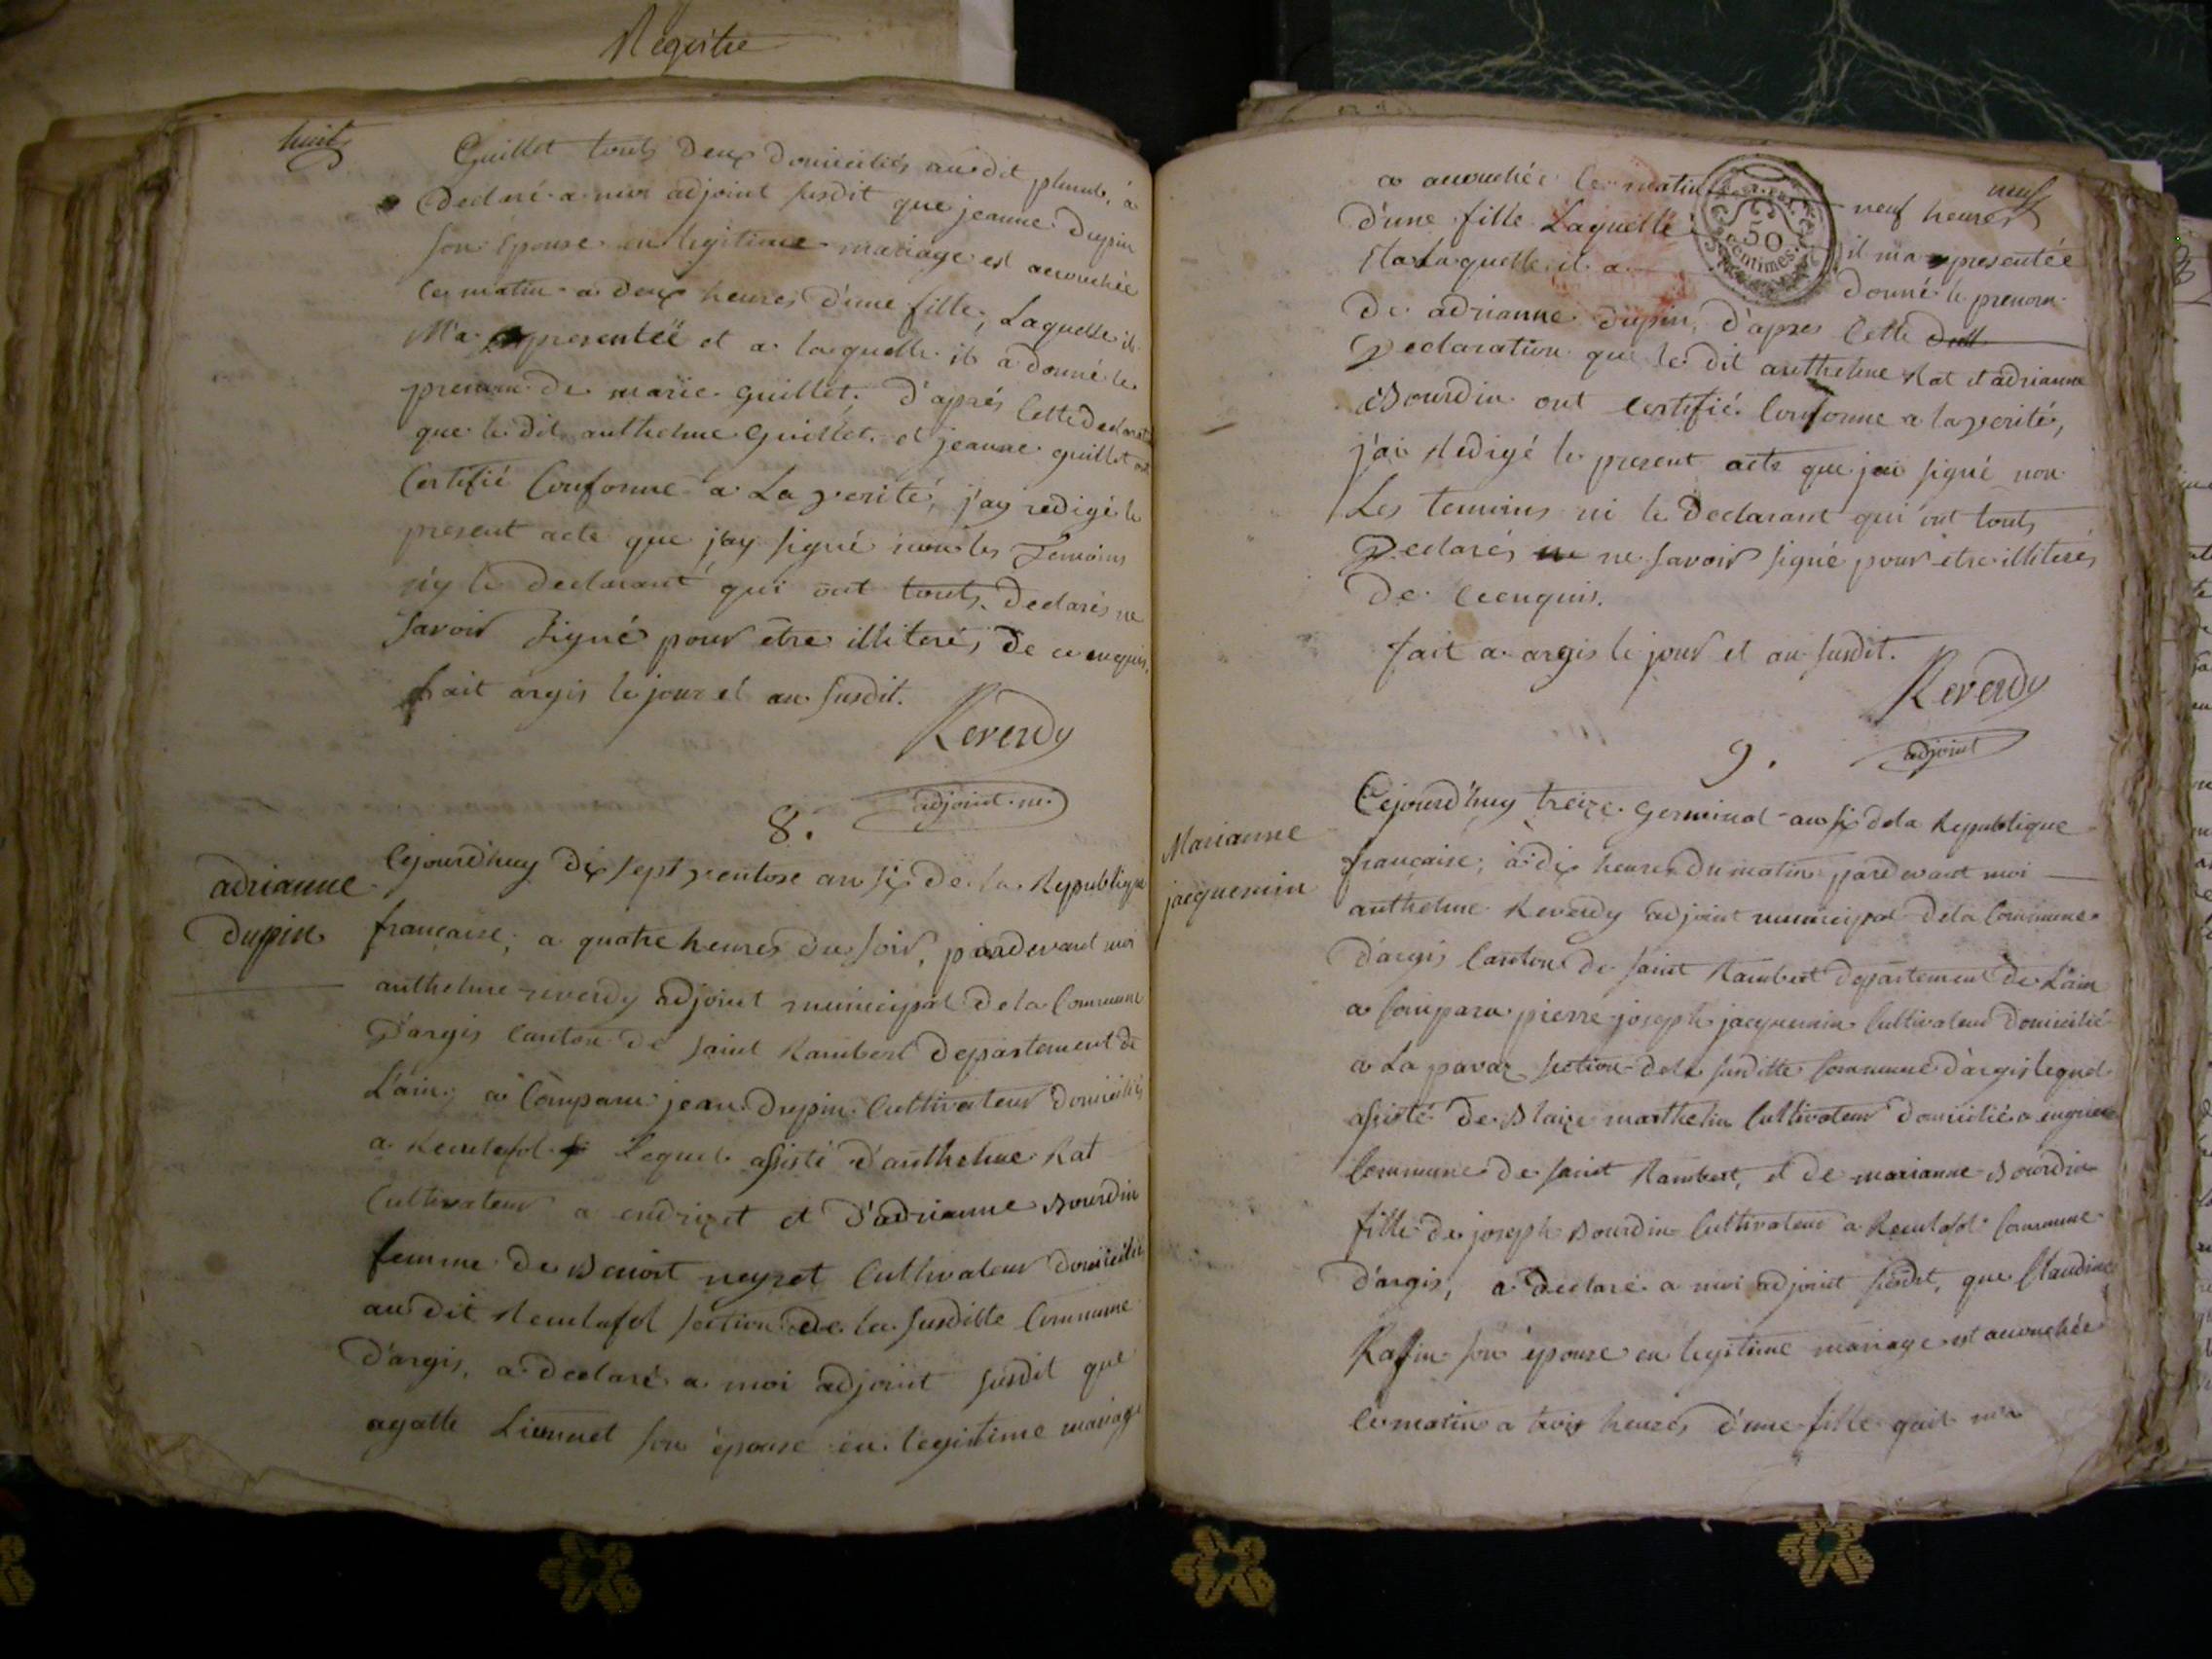 Registre
huit
Guillet touts deux domiciliés audit plumb, a
declaré a moi adjoint susdit que jeanne Dupin
son epouse en legitime mariage est accouchée
ce matin a deux heures d'une fille, Laquelle il
M'a presentée et a laquelle il a donné le
prenom de marie Guillet. D'aprés Cette Declarat
que le dit anthelme Guillet et jeanne guillet ont
Certifié Conforme a La verité, j'ay redigé le
present acte que j'ay signé non les Temoins
n'y le declarant qui ont touts declarés ne
savoir signé pour etre illiterés de ce enquis.
fait argis le jour et an susdit.
Reverdy
adjoint m.
8.
adrianne
Dupin
Cejourd'huy dix sept ventose an six de la Republique
francaise, a quatre heures du soir, pardevant moi
anthelme reverdy adjoint municipal de la Commune
D'argis Canton de saint Rambert departement de
L'ain; a Comparu jean Dupin Cultivateur domicilié
a Reculafol Lequel assisté d'anthelme Rat
Cultivateur a endrizet et d'adrianne Bourdin
femme de Benoit neyret Cultivateur domicilié
au dit Reculafol section de la susditte Commune
d'argis, a declaré a moi adjoint susdit que
agathe Lionnet son épouse en legitime mariage
neuf
a accouchée ce matin neuf heures
d'une fille Laquelle il m'a presentée
Et a Laquelle il a donné le prenom
De adrianne Dupin, d'apres Cette
Declaration que le dit anthelme Rat et adrianne
Bourdin ont Certifié Conforme a la verité,
j'ai Redigé le present acte que j'ai signé non
Les temoins ni le Declarant qui ont touts
Declarés ne savoir signé pour etre illiterés
De Ce enquis.
fait a argis le jour et an susdit.
Reverdy
adjoint
50
centimes
9.
Marianne
jacquemin
Cejourd'huy treize germinal an six dela Republique
française, à dix heures du matin pardevant moi
anthelme Reverdy adjoint municipal dela Commune
D'argis Canton de saint Rambert departement de L'ain
a Comparu pierre joseph jacquemin Cultivateur domicilié
a La pavaz section dela susditte Commune d'argis lequel
assisté de Blaize marthelin Cultivateur domicilié a
Commune de saint Rambert, et de marianne Bourdin
fille de joseph Bourdin Cultivateur a Reculafol Commune
d'argis, a declaré a moi adjoint susdit, que Claudine
Raffin son épouse en legitime mariage est accouchée
ce matin a trois heures d'une fille quil m'a